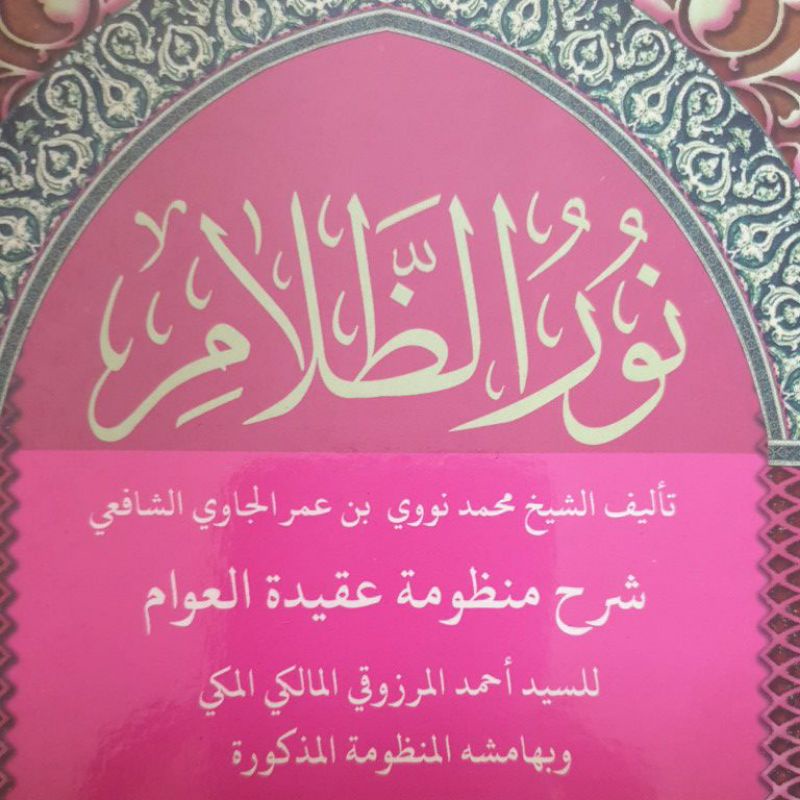 نُورُ الظَّلَامِ
تأليف الشيخ محمد نووي بن عمر الجاوي الشافعي
شرح منظومة عقيدة العوام
للسيد أحمد المرزوقي المالكي المكي
وبهامشه المنظومة المذكورة